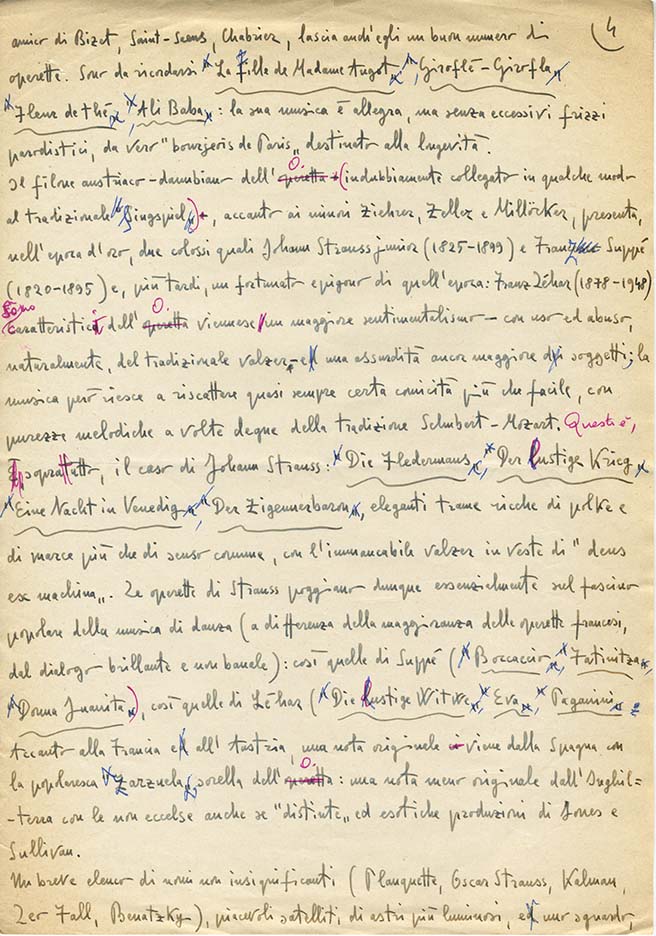 4
amico di Bizet, Saint-Saens, Chabrier, lascia anch'egli un buon numero di
operette. Sono da ricordarsi "La Fille de Madame Angot", "Giroflé-Girofla",
"Fleur de thé", "Ali Baba": la sua musica è allegra, ma senza eccessivi frizzi
parodistici, da vero "bourjeois de Paris" destinato alla longevità.
Il filone austriaco-danubiano dell'O. (indubbiamente collegato in qualche modo
al tradizionale "Singspiel"), accanto ai minori Ziehrer, Zeller e Millöcker, presenta,
nell'epoca d'oro, due colossi quali Johann Strauss junior (1825-1899) e Franz Suppé
(1820-1895) e, più tardi, un fortunato epigono di quell'epoca: Franz Léhar (1878-1948)
Sono caratteristici dell'O. viennese un maggiore sentimentalismo - con uso ed abuso,
naturalmente, del tradizionale valzer - e una assurdità ancor maggiore di soggetti; la
musica però riesce a riscattare quasi sempre certa comicità più che facile, con
purezze melodiche a volte degne della tradizione Schubert-Mozart. Questo è,
soprattutto, il caso di Johann Strauss: "Die Fledermaus", "Der lustige Krieg",
"Eine Nacht in Venedig", "Der Zigeunerbaron", eleganti trame ricche di polke e
di marce più che di senso comune, con l'immancabile valzer in veste di "deus
ex machina". Le operette di Strauss poggiano dunque essenzialmente sul fascino
popolare della musica di danza (a differenza della maggioranza delle operette francesi,
dal dialogo brillante e non banale): così quelle di Suppé ("Boccaccio", "Fatinitza",
"Donna Juanita"), così quelle di Léhar ("Die lustige Witwe", "Eva", "Paganini"
Accanto alla Francia e all'Austria, una nota originale viene dalla Spagna con
la popolaresca "Zarzuela", sorella dell'O.: una nota meno originale dall'Inghil=
-terra con le non eccelse anche se "distinte" ed esotiche produzioni di Jones e
Sullivan.
Un breve elenco di nomi non insignificanti (Planquette, Oscar Strauss, Kalman,
Leo Fall, Benatzky), piacevoli satelliti di astri più luminosi, e uno sguardo,